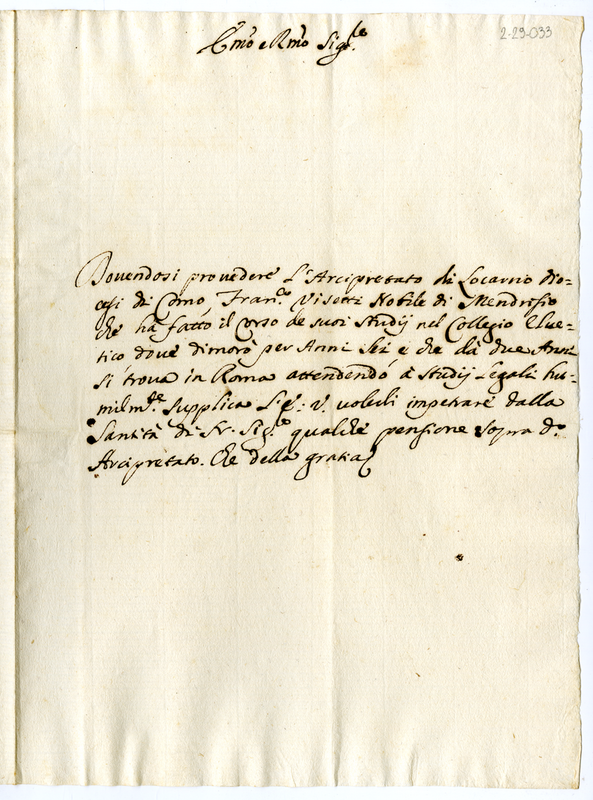 2-29-033
Em̃o e Rm̃o Sig.re
Dovendosi provedere l'Arcipretato di Locarno dio=
cesi di Como Fran.co Visetti Nobile di Mendrisio
che ha fatto il Corso de suoi Studij nel Collegio Elve=
tico dove dimorò per Anni Sei e che da due Anni
si trova in Roma attendendo à Studij Legali hu=
milm.te supplica V. volerli impetrare dalla
Santità di N. Sig.re qualche pensione sopra d.o
Arcipretato. Che della gratia